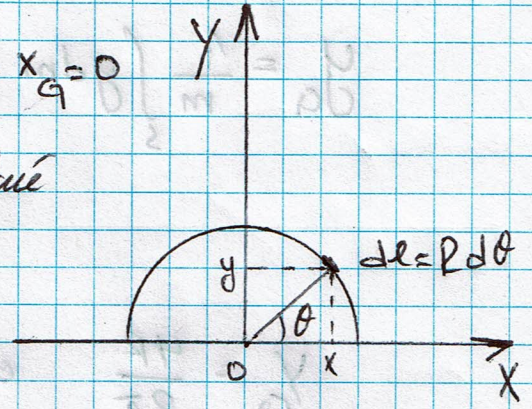 Y
x_G = 0
y
dl = R dθ
θ
o
x
X